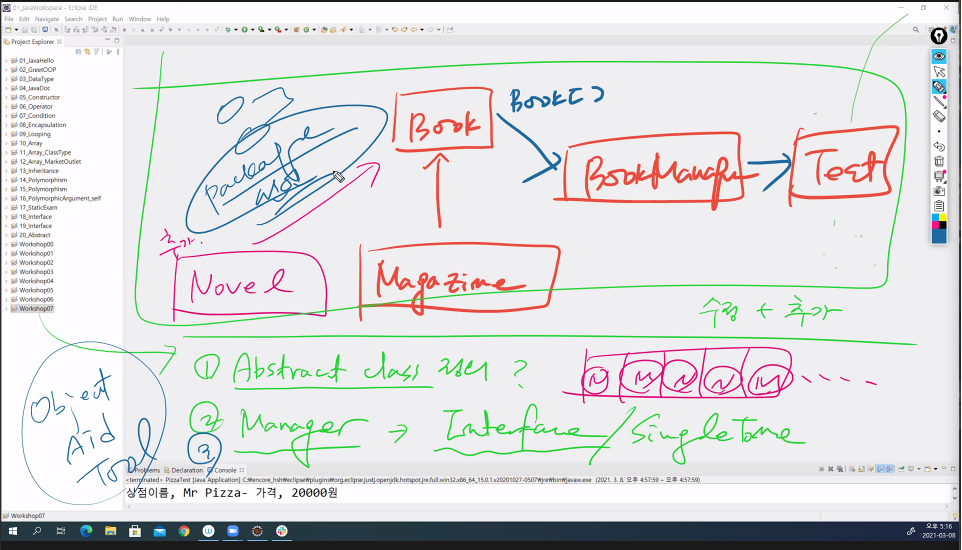 01_javaWorkspace - Eclipse IDE
File Edit Navigate Search Project Run Window Help
Project Explorer
01_JavaHello
02_GreetOOP
03_DataType
04_JavaDoc
05_Constructor
06_Operator
07_Condition
08_Encapsulation
09_Looping
10_Array
11_Array_ClassType
12_Array_MarketOutlet
13_Inheritance
14_Polymorphism
15_Polymorphism
16_PolymorphicArgument_self
17_StaticExam
18_Interface
19_Interface
20_Abstract
Workshop00
Workshop01
Workshop02
Workshop03
Workshop04
Workshop05
Workshop06
Workshop07
Book
Book[]
BookManager
Test
package
추가.
Novel
Magazine
수정 + 추가
① Abstract class 정의 ?
② Manager → Interface / SingleTone
③
Object
Aid
Tool
Problems Declaration Console
<terminated> PizzaTest [Java Application] C:\encore_hsh\eclipse\plugins\org.eclipse.justj.openjdk.hotspot.jre.full.win32.x86_64_15.0.1.v20201027-0507\jre\bin\javaw.exe (2021. 3. 8. 오후 4:57:59 – 오후 4:57:59)
상점이름, Mr Pizza- 가격, 20000원
Workshop07
오후 5:16
2021-03-08